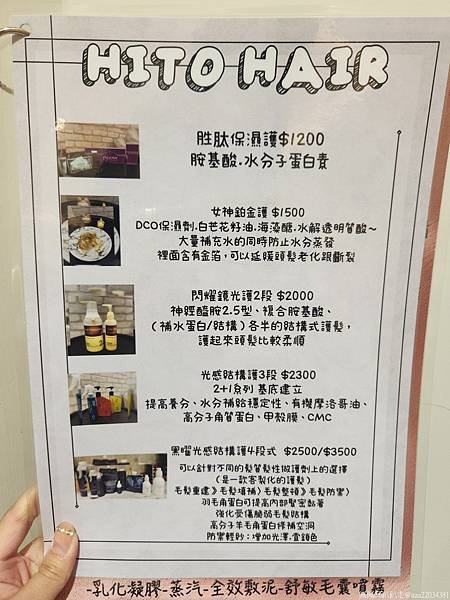 HITO HAIR
胜肽保濕護$1200
胺基酸.水分子蛋白素
女神鉑金護 $1500
DCO保濕劑.白芒花籽油.海藻醣.水解透明質酸～
大量補充水的同時防止水分蒸發
裡面含有金箔,可以延緩頭髮老化跟斷裂
閃耀鏡光護2段 $2000
神經醯胺2.5型、複合胺基酸、
(補水蛋白/結構)各半的結構式護髮,
護起來頭髮比較柔順
光感結構護3段 $2300
2+1系列 基底建立
提高養分、水分補給穩定性、有機摩洛哥油、
高分子角質蛋白、甲殼膜、CMC
黑曜光感結構護4段式 $2500/$3500
可以針對不同的髮質髮性做護劑上的選擇
(是一款客製化的護髮)
毛髮重建》毛髮填補》毛髮整頓》毛髮防禦》
羽毛角蛋白可提高內部緊密黏著
強化受傷脆弱毛髮結構
高分子羊毛角蛋白修補空洞
防禦輕紗:增加光澤.壹鎖色
-乳化凝膠-蒸汽-全效敷泥-舒敏毛囊噴霧
@aaa22034381